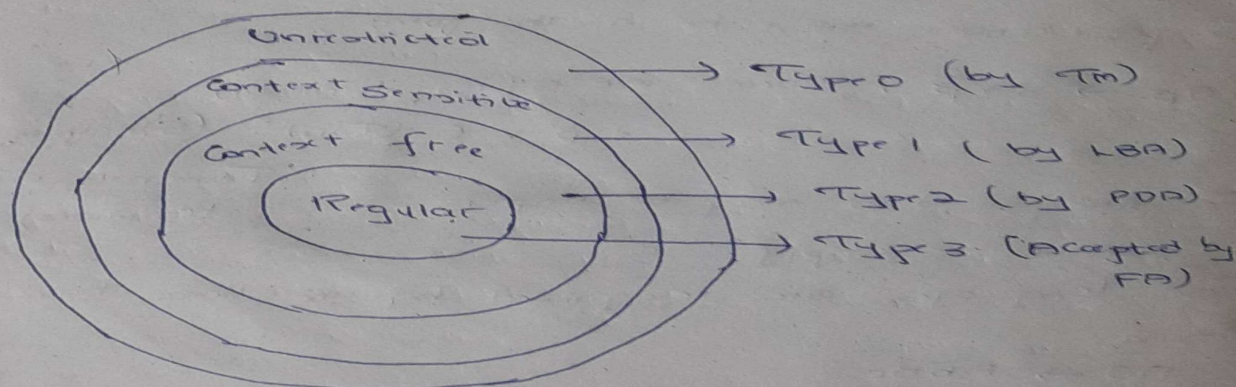 Unrestricted
Context Sensitive
Context free
Regular
Type 0 (by TM)
Type 1 (by LBA)
Type 2 (by PDA)
Type 3. (Accepted by
FA)